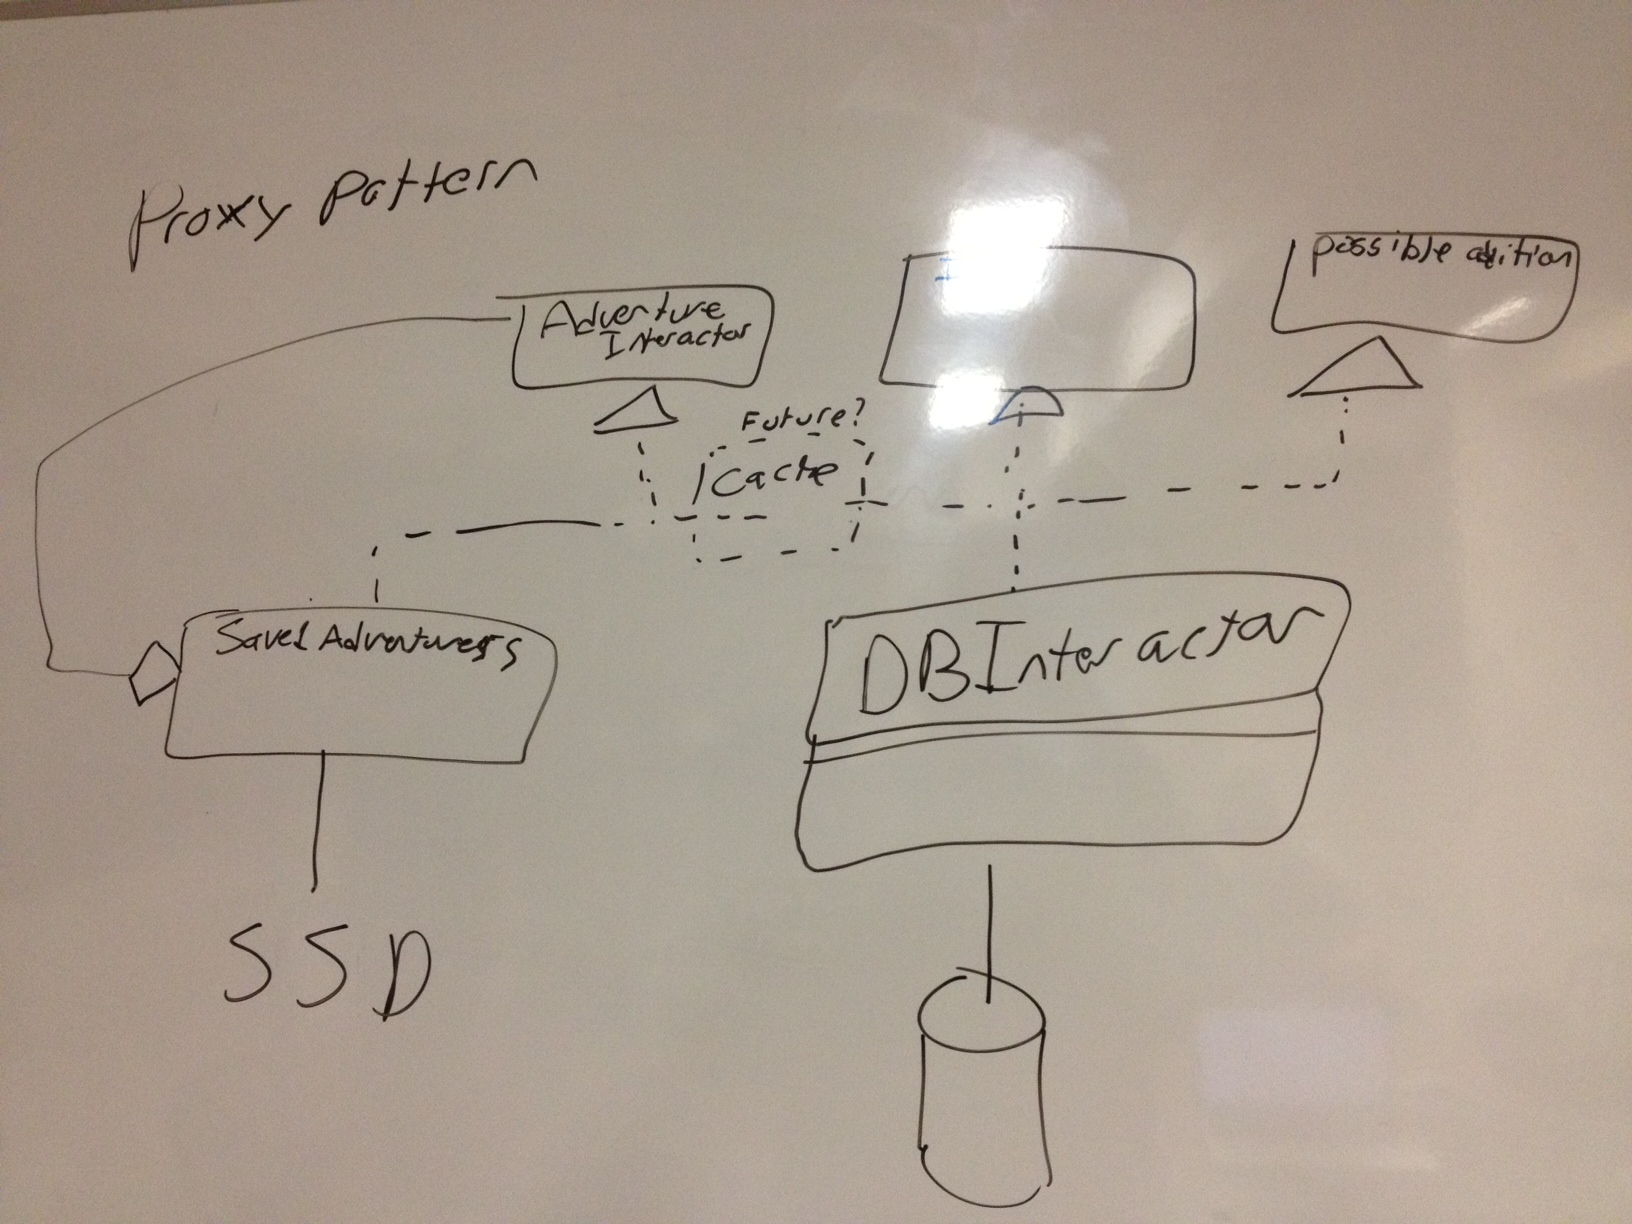 Proxy Pattern
Adventure
Interactor
possible adition
Future?
Cache
Saved Adventures
DBInteractor
SSD